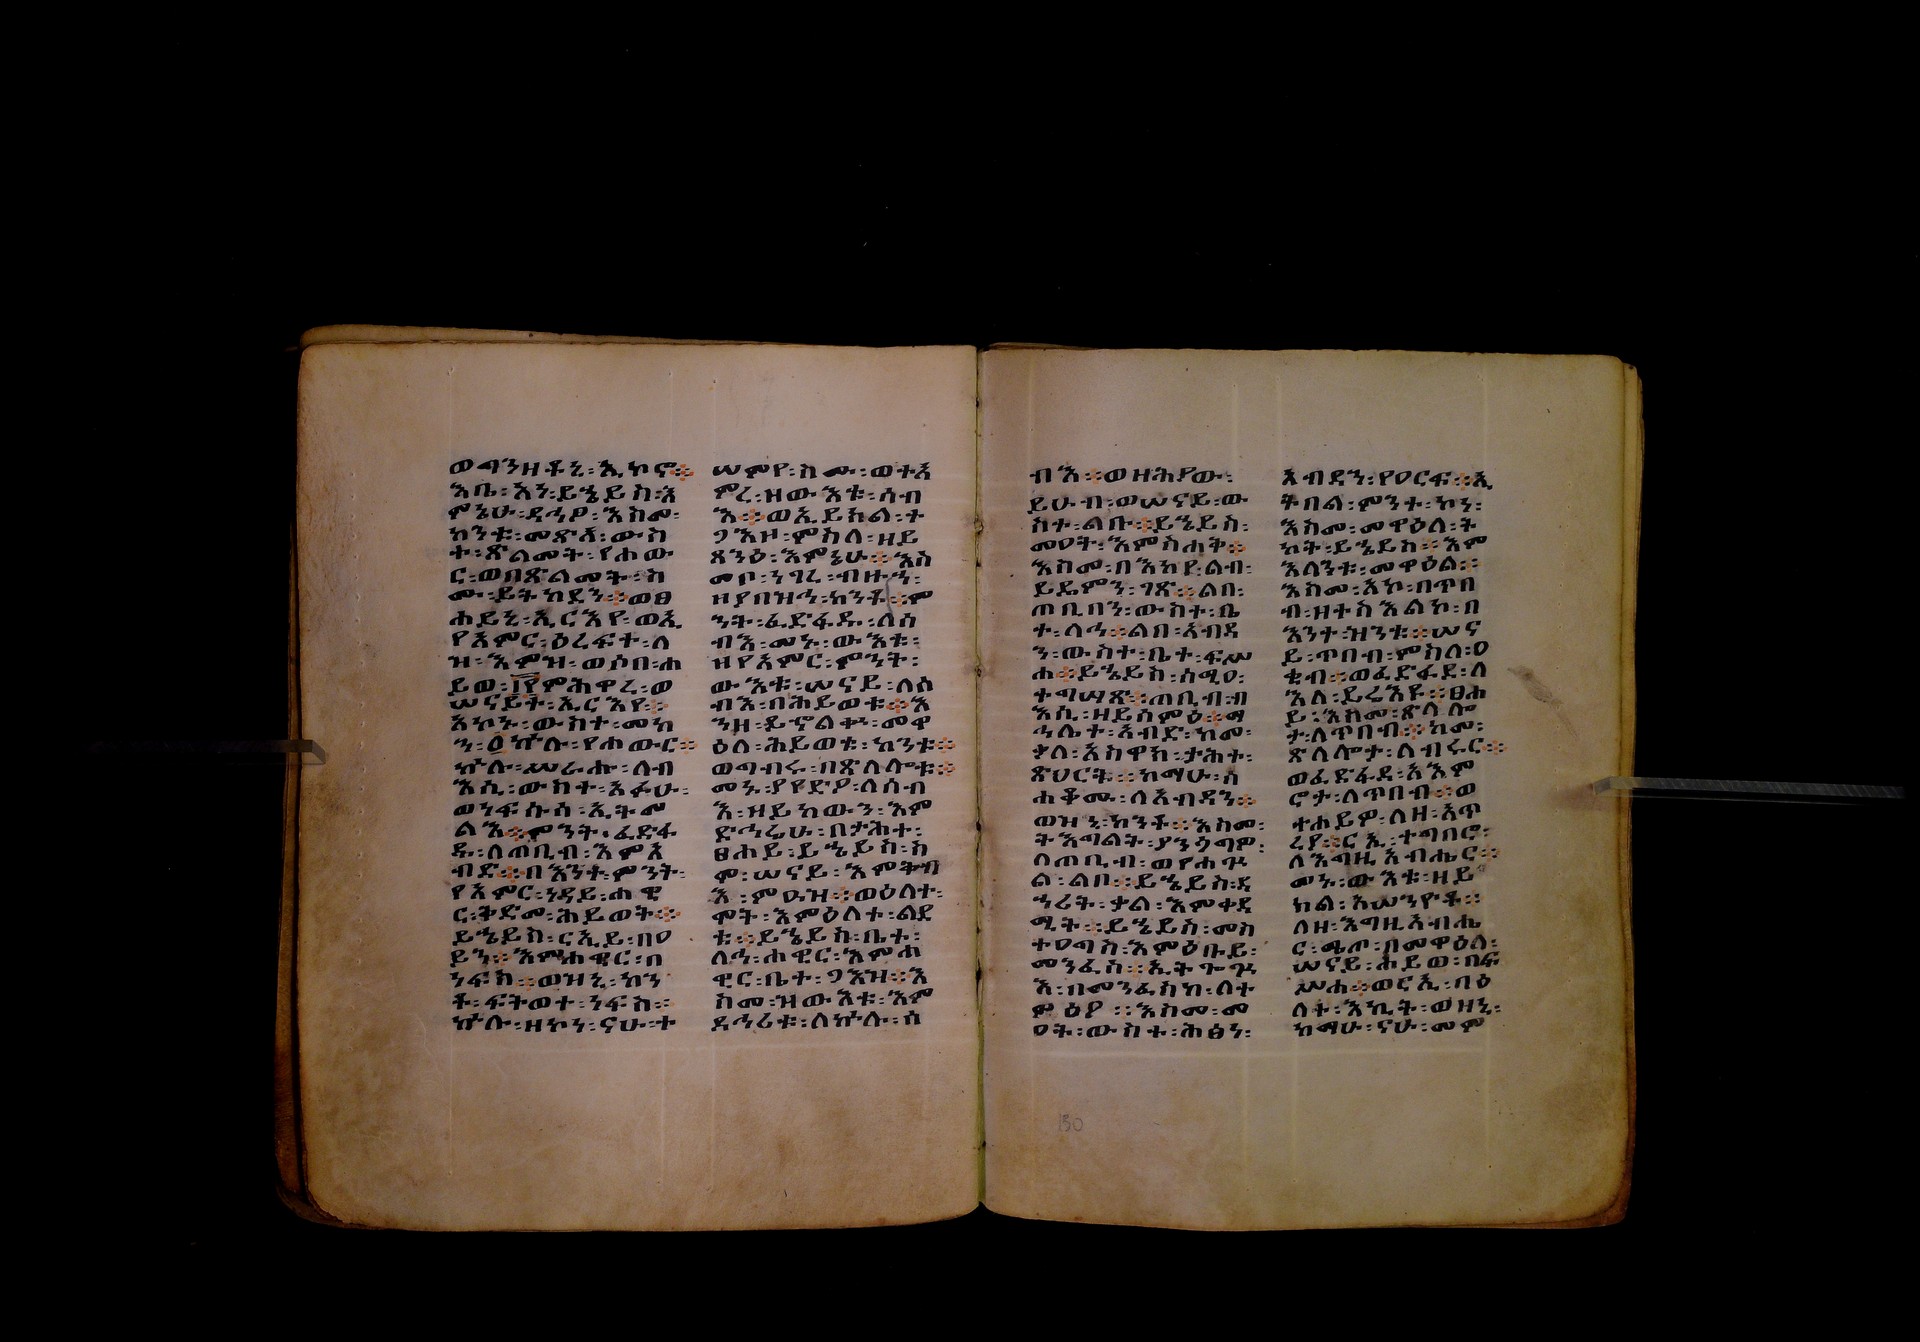 ወግንዘቶኒ፡ኢኮኖ፨
እቤ፡እንተ፡ይኄይስ፡እ
ምኔሁ፡ዳኅፆ፡እስመ፡
ከንቱ፡መጽአ፡ውስ
ተ፡ጽልመት፡የሐው
ር፡ወበጽልመት፡ስ
ሙ፡ይትከደን፨ወፀ
ሐይኒ፡ኢርእየ፡ወኢ
የአምር፡ዕረፍተ፡ለ
ዝ፡እምዝ፡ወሶበ፡ሐ
ይወ፡፲፻ምሕዋረ፡ወ
ሠናይት፡ኢርእየ፨
አኮኑ፡ውስተ፡መካ
ን፡፩ኵሉ፡የሐውር፨
ኵሉ፡ሥራሑ፡ለብ
እሲ፡ውስተ፡አፉሁ፡
ወነፍሱሰ፡ኢትመ
ልእ፨ምንት፡ፈድፋ
ዱ፡ለጠቢብ፡እምአ
ብድ፨በእንተ፡ምንት፡
የአምር፡ነዳይ፡ሐዊ
ር፡ቅድመ፡ሕይወት፨
ይኄይስ፡ርእይ፡በዐ
ይን፨እምሐዊር፡በ
ነፍስ፨ወዝኒ፡ከን
ቶ፡ፍትወተ፡ነፍስ፨
ኵሉ፡ዘኮነ፡ናሁ፡ተ
ሠምየ፡ስሙ፡ወተአ
ምረ፡ዝውእቱ፡ሰብ
እ፨ወኢይክል፡ተ
ጋእዞ፡ምስለ፡ዘይ
ጸንዕ፡እምኔሁ፨እስ
መቦ፡ነገረ፡ብዙኀ፡
ዘያበዝኅ፡ከንቶ፨ም
ንት፡ፈድፋዱ፡ለሰ
ብእ፡መኑ፡ውእቱ፡
ዘየአምር፡ምንት፡
ውእቱ፡ሠናይ፡ለሰ
ብእ፡በሕይወቱ፨እ
ንዘ፡ይኆልቍ፡መዋ
ዕለ፡ሕይወቱ፡ከንቱ፨
ወግብሩ፡በጽላሎቱ፨
መኑ፡ያየድዖ፡ለሰብ
እ፡ዝይከውን፡እም
ድኅሬሁ፡በታሕተ፡
ፀሐይ፡ይኄይስ፡ስ
ም፡ሠናይ፡እምቅብ
እ፡ምዑዝ፨ወዕለተ፡
ሞት፡እምዕለተ፡ልደ
ቱ፨ይኄይስ፡ቤተ፡
ላኅ፡ሐዊር፡እምሐ
ዊር፡ቤተ፡ጋእዝ፨እ
ስመ፡ዝውእቱ፡እም
ደኃሪቱ፡ለኵሉ፡ሰ
ብእ፨ወዘሕያው፡
ይሁብ፡ወሠናይ፡ው
ስተ፡ልቡ፨ይኄይስ፡
መዐት፡እምስሐቅ፨
እስመ፡በእከየ፡ልብ፡
ይዴምን፡ገጽ፨ልበ፡
ጠቢባን፡ውስተ፡ቤ
ተ፡ላኅ፨ልበ፡አብዳ
ን፡ውስተ፡ቤተ፡ፍሡ
ሐ፨ይኄይስ፡ሰሚዐ፡
ተግሣጽ፨ጠቢብ፡ብ
እሲ፡ዘይሰምዕ፨ማ
ኅሌተ፡አብድ፡ከመ፡
ቃለ፡አስዋክ፡ታሕተ፡
ጽህርት፨ከማሁ፡ሰ
ሐቆሙ፡ለአብዳን፨
ወዝኒ፡ከንቶ፨እስመ፡
ትእግልት፡ያንጌግዮ፡
ለጠቢብ፡ወየሐጕ
ል፡ልበ፨ይኄይስ፡ደ
ኃሪት፡ቃል፡እምቀዳ
ሚት፨ይኄይስ፡መስ
ተዐግስ፡እምዕቡይ፡
መንፈስ፨ኢትጐጕ
እ፡በመንፈስከ፡ለተ
ምዕዖ፨እስመ፡መ
ዐት፡ውስተ፡ሕፅነ፡
አብዳን፡የዐርፍ፨ኢ
ትበል፡ምንተ፡ኮነ፡
እስመ፡መዋዕለ፡ት
ካት፡ይኄይስ፨እም
እላንቱ፡መዋዕል፨
እስመ፡አኮ፡በጥበ
ብ፡ዘተስእልኮ፡በ
እንተ፡ዝንቱ፨ሠና
ይ፡ጥበብ፡ምስለ፡ዐ
ቂብ፨ወፈድፋደ፡ለ
እለ፡ይሬእዩ፨ፀሐ
ይ፡እስመ፡ጽላሎ
ታ፡ለጥበብ፨ከመ፡
ጽላሎታ፡ለብሩር፨
ወፈድፋደ፡አእም
ሮታ፡ለጥበብ፨ወ
ተሐይዎ፡ለዘ፡አጥ
ረያ፨ርኢ፡ተግበሮ፡
ለእግዚአብሔር፨
መኑ፡ውእቱ፡ዘይ
ክል፡አሠንዮቶ፨
ለዘ፡እግዚአብሔ
ር፡ሜጦ፡በመዋዕለ፡
ሠናይ፡ሕይወ፡በፍ
ሥሐ፨ወርኢ፡በዕ
ለተ፡እኪት፡ወዘኒ፡
ከማሁ፡ናሁ፡መም
150